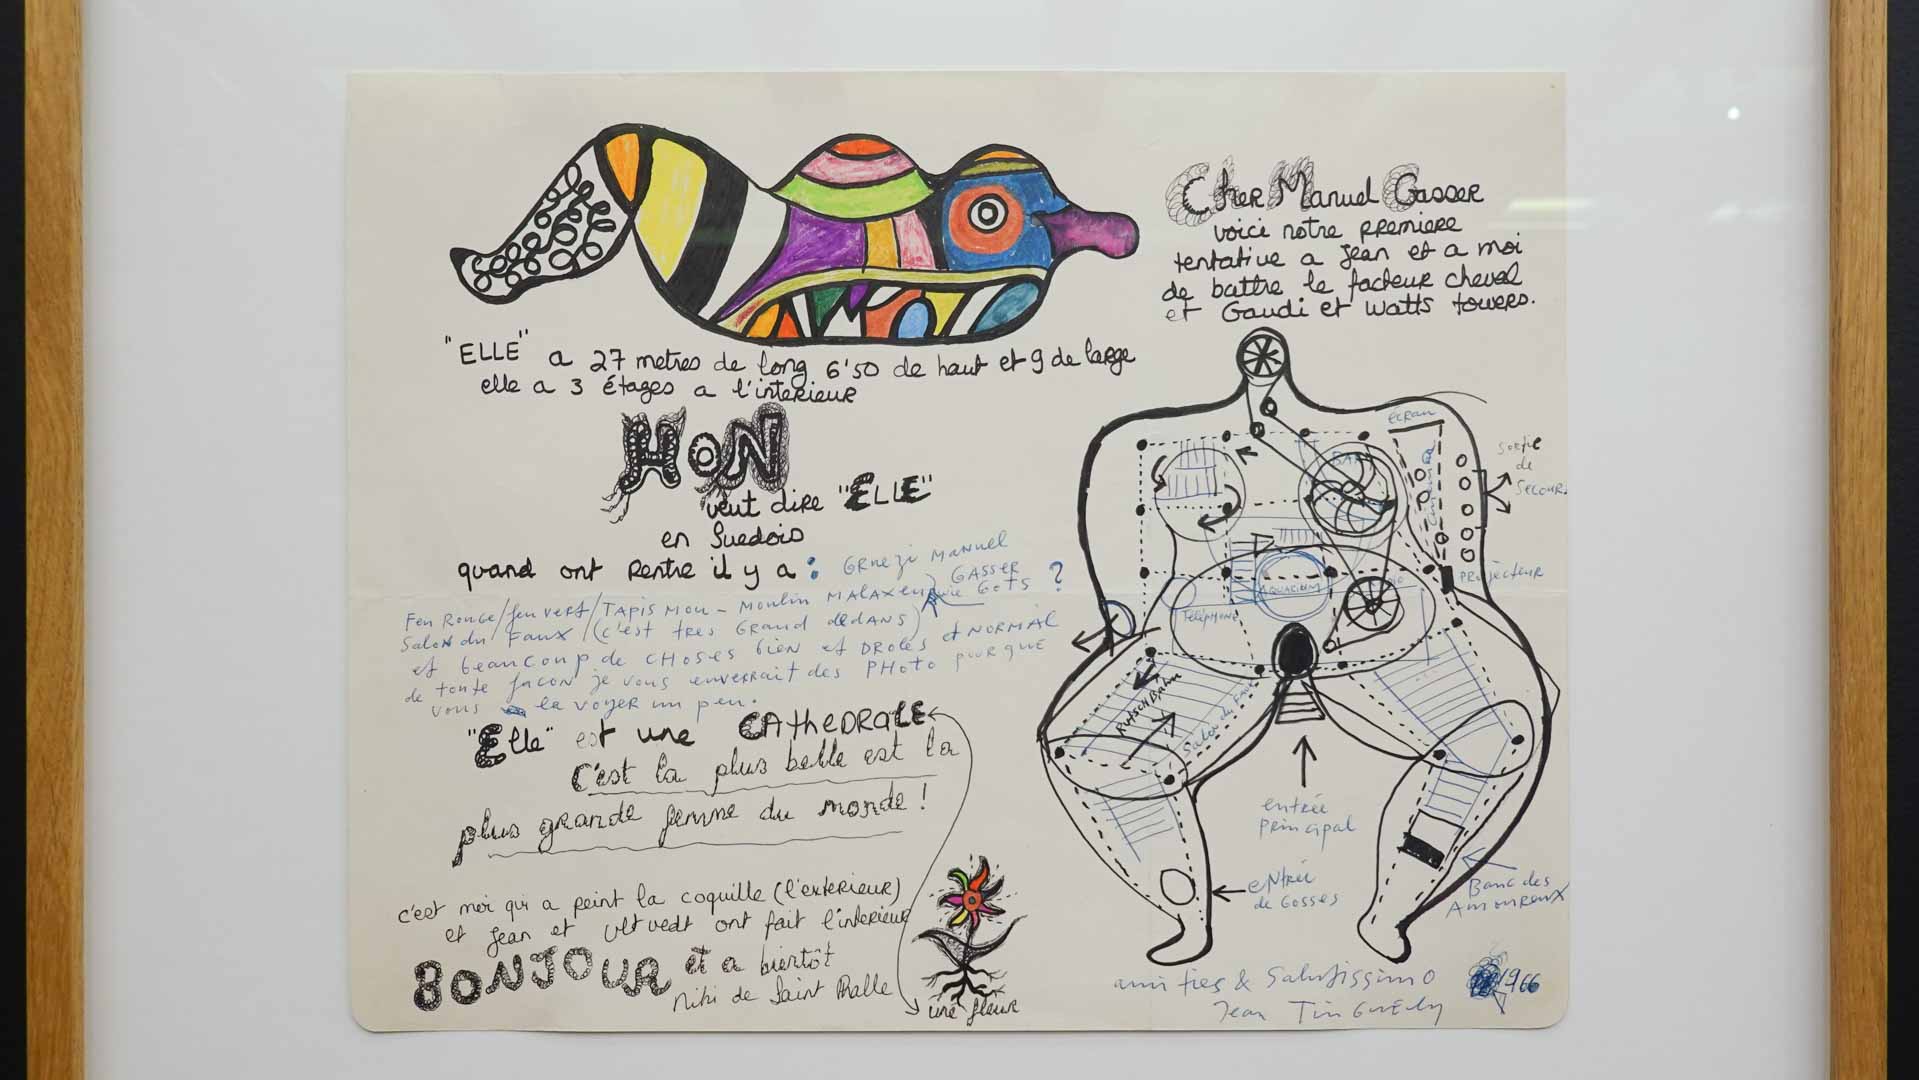 Cher Manuel Gasser
voici notre premiere
tentative a Jean et a moi
de battre le facteur cheval
et Gaudi et Watts towers.
"ELLE" a 27 metres de long 6'50 de haut et 9 de large
elle a 3 étages a l'interieur
HON
veut dire "ELLE"
en Suedois
quand ont rentre il y a :
GRuezi MANuel
GASSER
GoTS ?
Feu Rouge/feu vert/TAPIS Mou - Moulin MALAXeur
Salon du FAUX /(c'est tres GRanD dedANS)
et beauCoup de CHoSes bien et DRoles et NORMAL
de toute facon je vous enverrait des PHoto pour que
vous la voyer un peu.
"Elle" est une CAtheDRALE
C'est la plus belle est la
plus grande femme du monde !
c'est moi qui a peint la coquille (l'exterieur)
et Jean et Ultvedt ont fait l'interieur
BONJOUR et a bientôt
Niki de Saint Phalle
une fleur
écran
BAR
Cinema
Sortie
de
Secours
PRoJecteur
AQUARIUM
Téléphone
RutschBahn
Salon du FAUX
entrée
principal
eNtrée
de Gosses
Banc des
AmouReuX
amities & Salutissimo
Jean TinGuely
1966